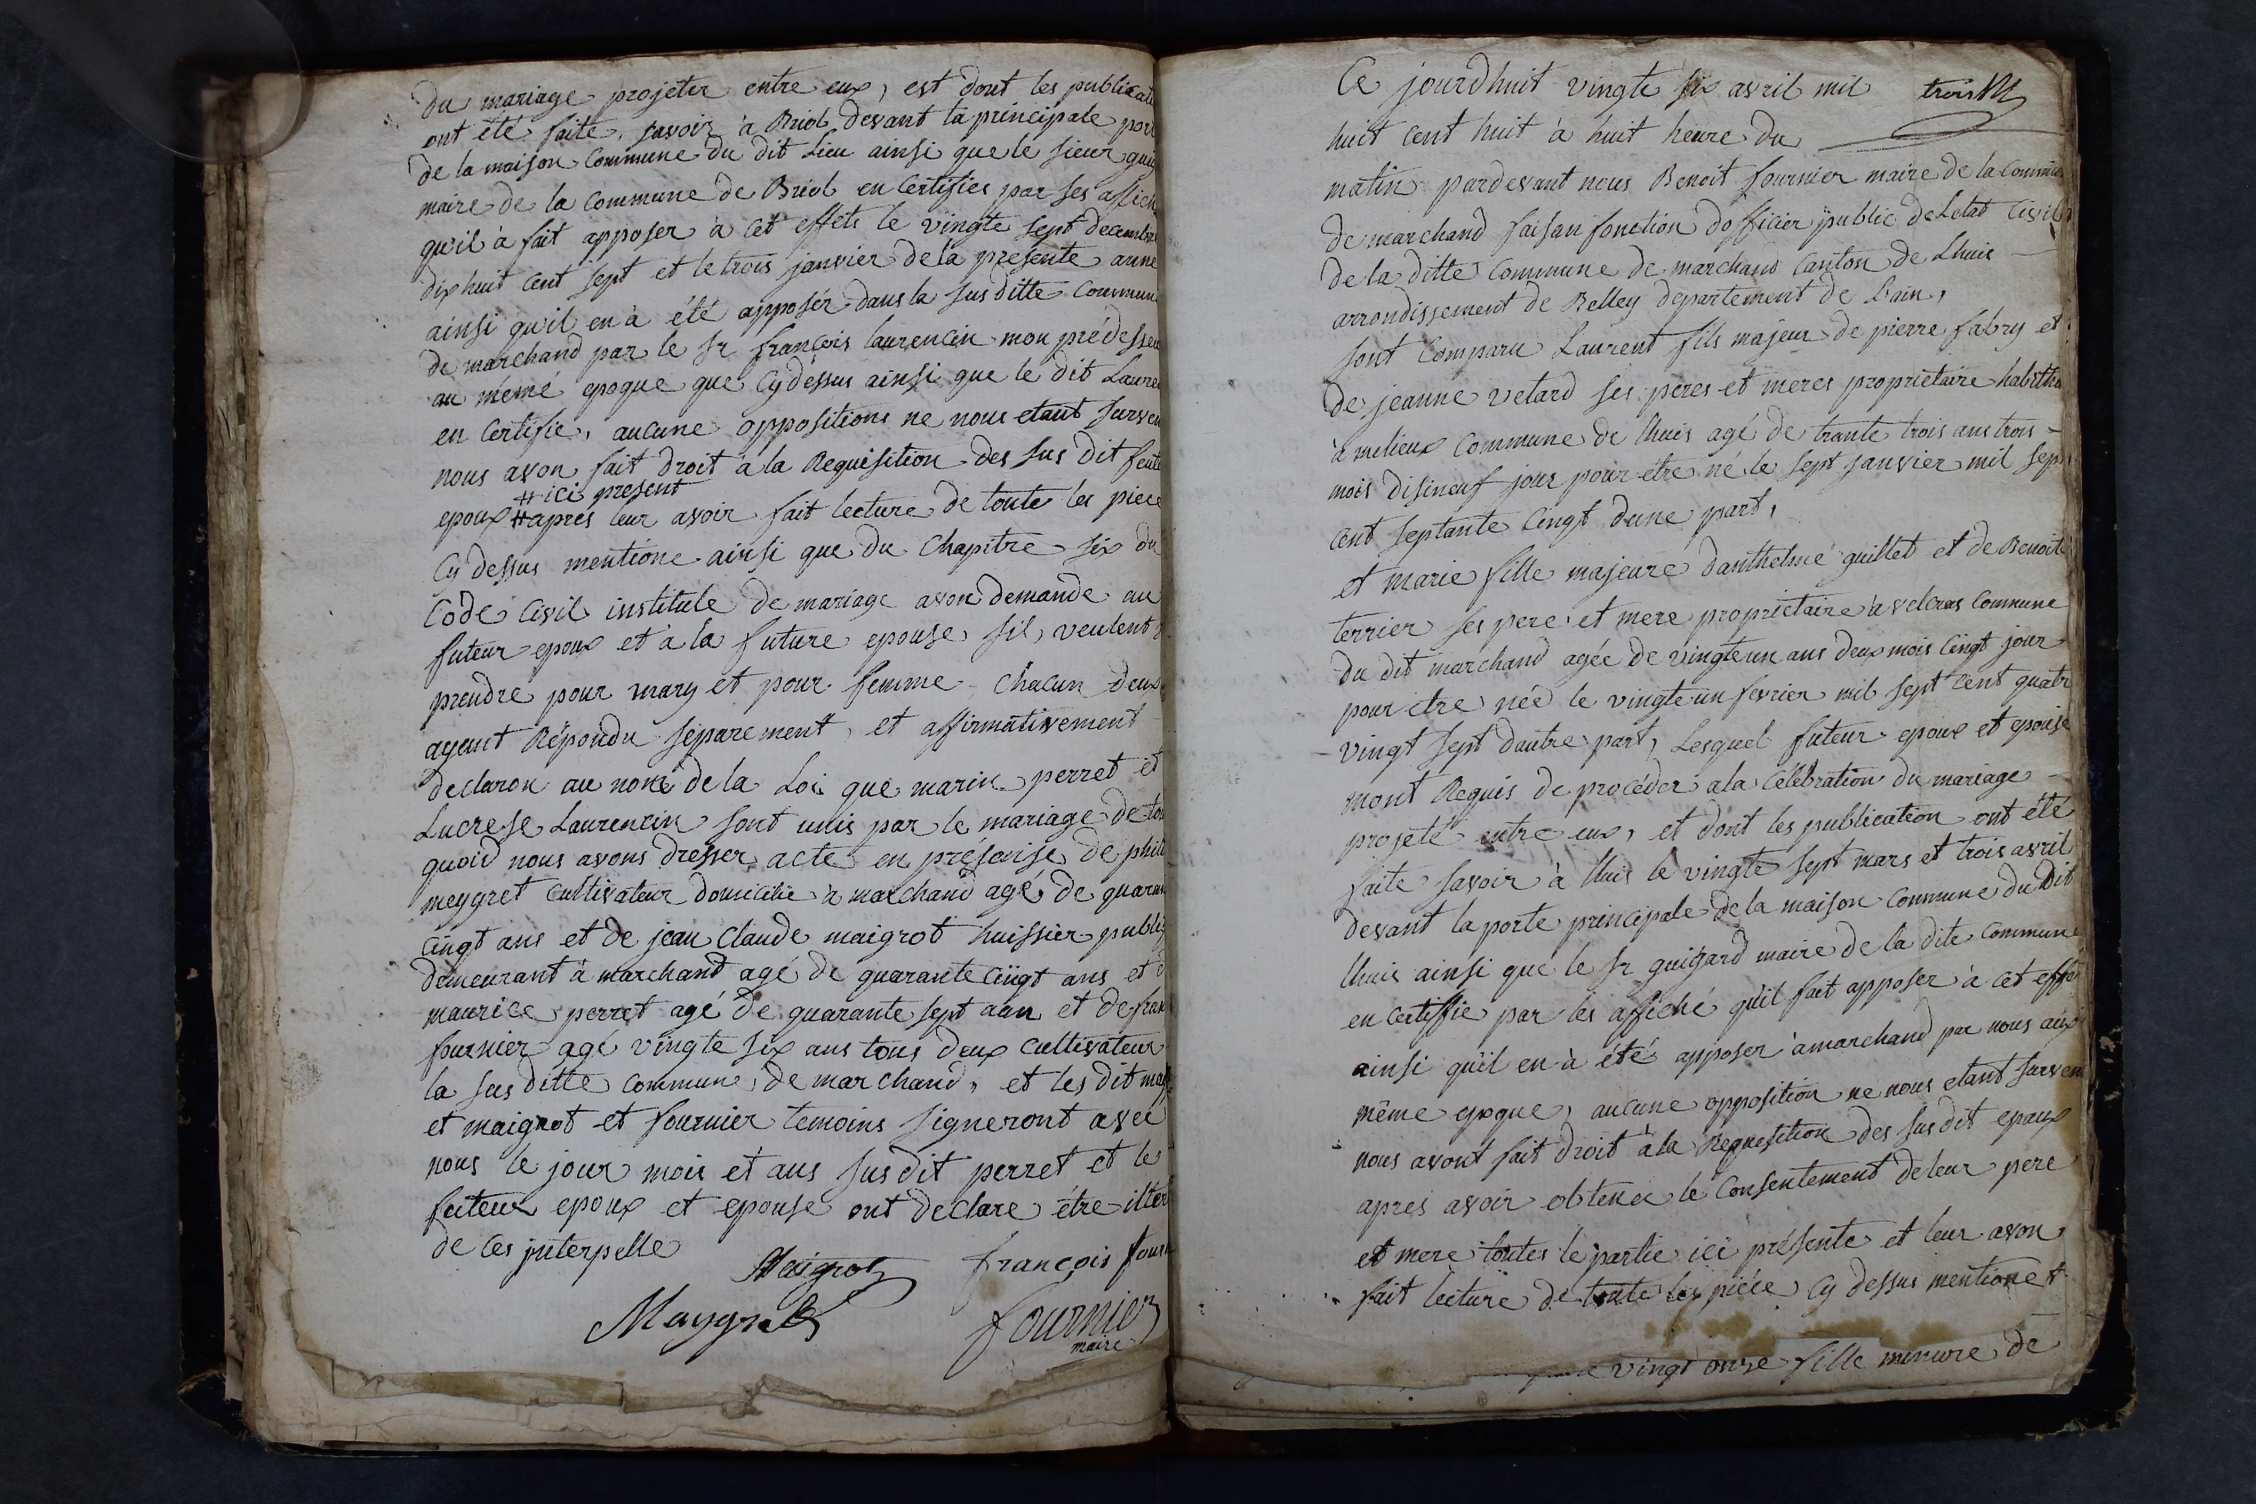 du mariage projeter entre eux, est dont les publicati
ont été faite, savoir à Briod devant la principale port
de la maison commune du dit Lieu ainsi que le sieur gui
maire de la commune de Briod en certifier par ses affich
qu'il à fait apposer à cet effets le vingte sept decembr
dix huit cent sept et le trois janvier de la presente anne
ainsi qu'il en à été apposér dans la sus ditte commun
de marchand par le Sr françois laurencin mon prédesse
au méme epoque que cy dessus ainsi que le dit Lauren
en certifie, aucune oppositions ne nous etant surven
nous avon fait droit à la Requisition des sus dit feute
# ici present
epoux # aprés leur avoir fait lecture de toute les piece
Cy dessus mentione ainsi que du Chapitre six du
Code civil institule de mariage avon demande au
futeur epoux et à la future epouse, sil, veulent
prendre pour mary et pour femme chacun deux
ayant Répondu séparement, et affirmativement
declaron au nome de la Loi que marin perret et
Lucrese Laurencin sont unis par le mariage de tou
quoid nous avons dresser acte en presense de phili
meygret cultivateur domicilie à marchand agé de quaran
cingt ans et de jean Claude maigrot huissier publi
demeurant à marchand agé de quarante cingt ans et d
maurice perret agé de quarante sept ann et de fran
fournier agé vingte six ans tous deux cultivateur
la sus ditte commun de marchand, et les dit may
et maigrot et fournier temoins signeront avec
nous le jour mois et ans sus dit perret et le
futeur epoux et epouse ont declare étre iliter
de ces interpelle
Maigrot françois fourn
Maygret fournier
maire
Ce jourdhuit vingte six avril mil
trois
huit cent huit à huit heure du
matin pardevant nous Benoit fournier maire de la commun
de marchand faisan fonction dofficier public de Letat civil
de la ditte commune de marchand canton de Lhuis
arrondissement de Belley departement de Lain,
sont comparu Laurent fils majeur de pierre fabry et
de jeanne velard ses peres et meres proprietaire habitha
à milieux commune de lhuis agé de trante trois ans trois
mois disineuf jour pour étre né le sept janvier mil sept
cent septante cingt d'une part,
et marie fille majeure danthelme guillet et de Benoite
terrier ses pere et mere proprietaire à veleras commune
du dit marchand agée de vingte un ans deux mois cingt jour
pour etre née le vingte un fevrier mil sept cent quatr
vingt sept dautre part, Lesquel futeur epoux et epouse
mont Requis de procéder a la célébration du mariage
projeté entre eux, et dont les publication ont été
faite savoir à lhuis le vingte sept mars et trois avril
devant la porte principale de la maison commune du dit
lhuis ainsi que le Sr guigard maire de la dite commune
en certiffie par les affiché qu'il fait apposer à cet effe
ainsi qu'il en à été apposer à marchand par nous aux
même epoque, aucune opposition ne nous etant surven
nous avont fait droit à la Requesition des sus dit epoux
apres avoir obtenu le consentement de leur pere
et mere toutes le partie ici présente et leur avon
fait lecture de toute les piéce cy dessus mentione et
vingt onze fille mineure de